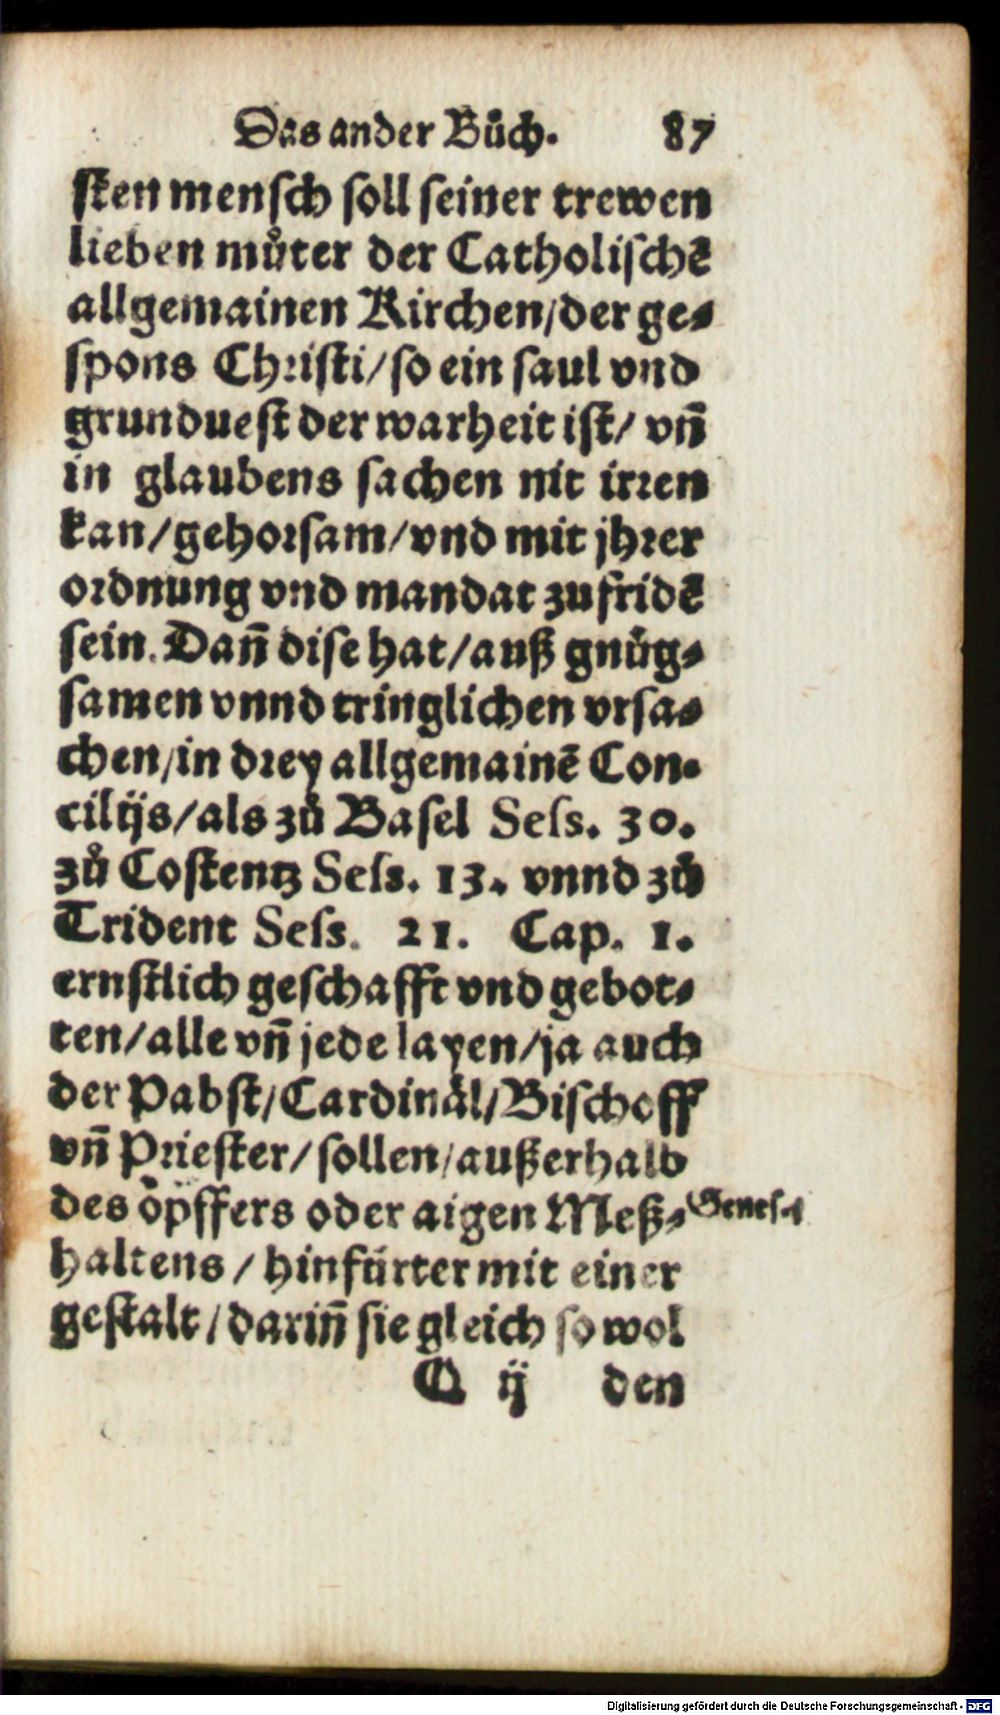 Das ander Bůch. 87
sten mensch soll seiner trewen
lieben můter der Catholischē
allgemainen Kirchen/der ge-
spons Christi/so ein saul vnd
grunduest der warheit ist/ vn̄
in glaubens sachen nit irren
kan/gehorsam/vnd mit jhrer
ordnung vnd mandat zufridē
sein. Dan̄ dise hat/auß gnůg-
samen vnnd tringlichen vrsa-
chen/in drey allgemainē Con-
cilijs/als zů Basel Sess. 30.
zů Costentz Sess. 13. vnnd zů
Trident Sess. 21. Cap. 1.
ernstlich geschafft vnd gebot-
ten/alle vn̄ jede layen/ja auch
der Pabst/Cardinäl/Bischoff
vn̄ Priester/sollen/außerhalb
des öpffers oder aigen Meß- Genes.
haltens / hinfürter mit einer
gestalt/darin̄ sie gleich so wol
Q ij den
Digitalisierung gefördert durch die Deutsche Forschungsgemeinschaft - DFG